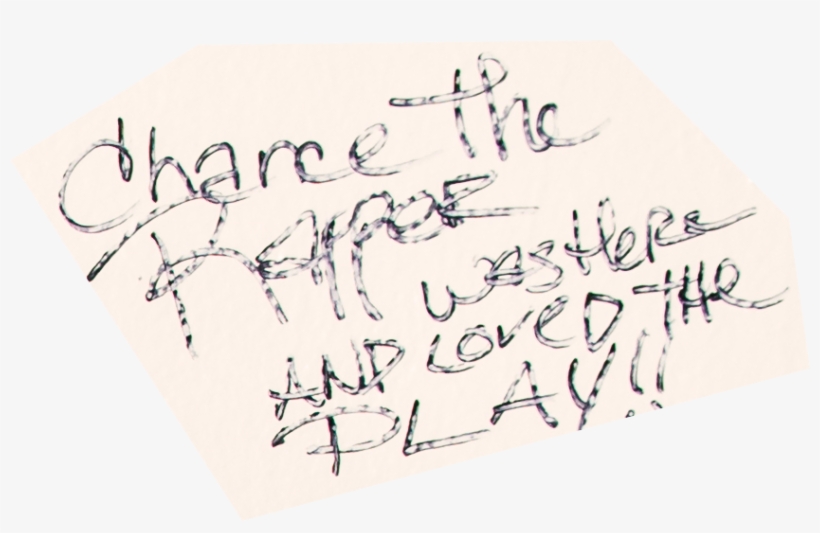 Chance the
Rapper
was Here
AND Loved THe
PLAY!!